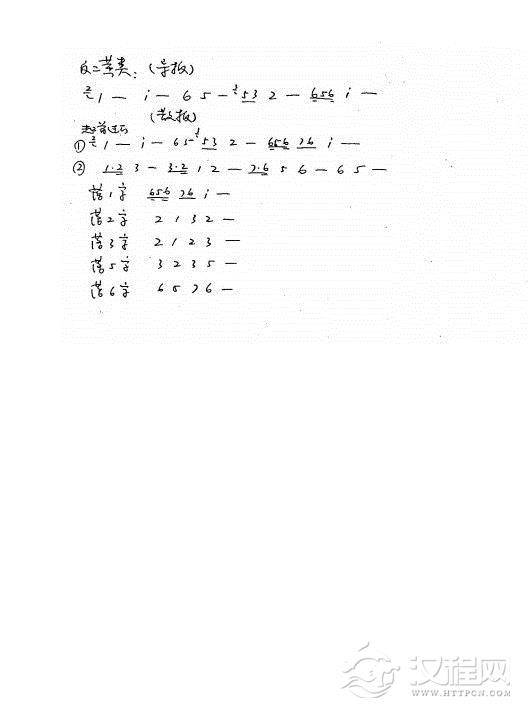 反二黄类：(导板)
2 1 — i — 6 5 — 53 2 — 656 i —
(散板)
① 2 1 — i — 65 — 53 2 — 656 76 i —
② 1·2 3 — 3·2 1 2 — 7·6 5 6 — 6 5 —
落1字 656 76 i —
落2字 2 1 3 2 —
落3字 2 1 2 3 —
落5字 3 2 3 5 —
落6字 6 5 7 6 —
汉程网
WWW.HTTPCN.COM